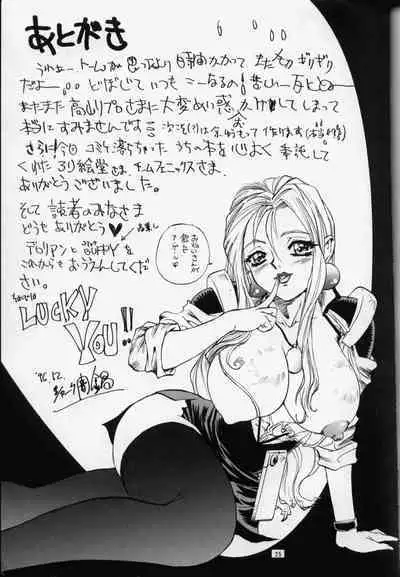 あとがき
うわぁー、トームが思ったより時間かかって またもやギリギリ
だよー どぼじていつも こーなるの!苦しいっなとな
またまた 高山プロさまに 大変めい惑 おかけしてしまって
本当にすみませんです 次こそ(り)は余裕もって作ります(本当か俺)
さらに今回 コミケ落ちちゃった うちの本を 心よく委託して
くれた ろり絵堂さま、モームフェニックスさま、
ありがとうございました。
そして 読者のみなさま
どうも ありがとう♡
アロリアンと BUFFYを
これからも おうえんしてくだ
さい。
LUCKY
YOU!!
'96.12.
おねいさんが
飲んで
あ・げ・る♡
25